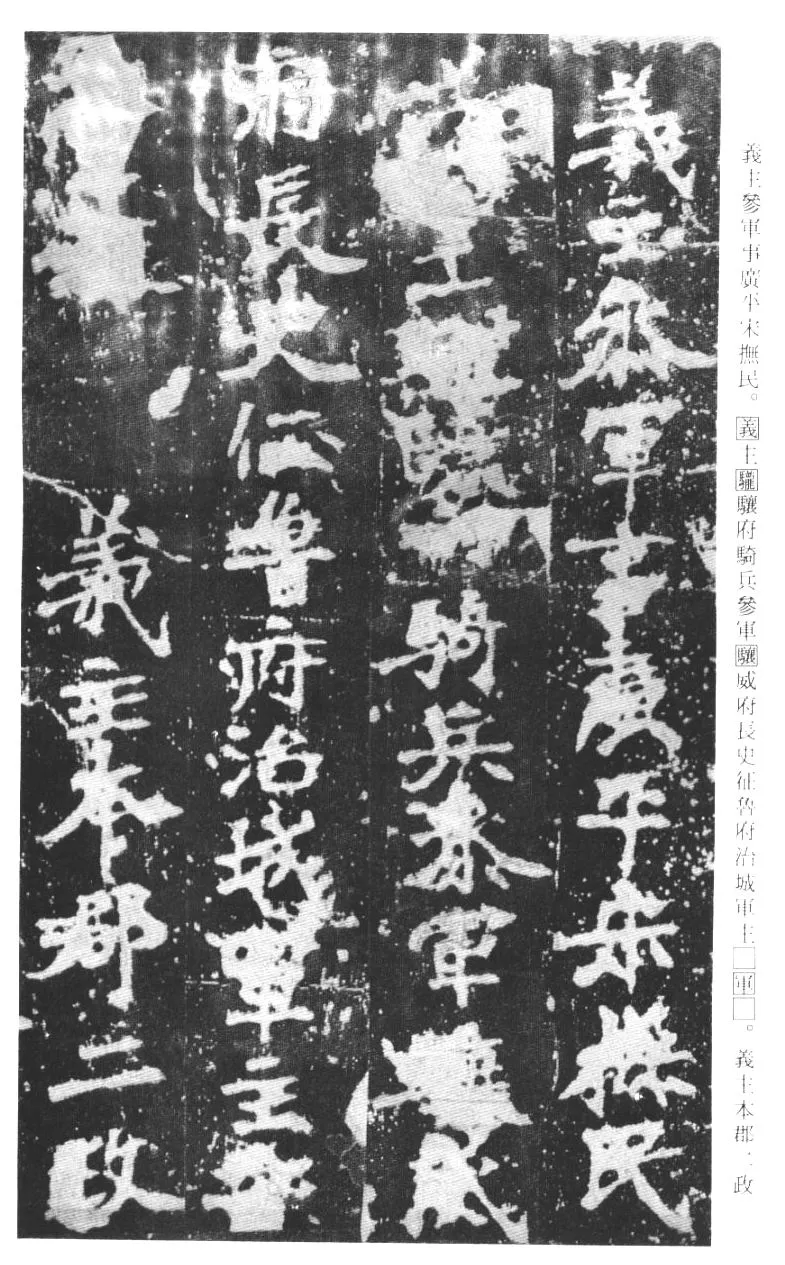 義主參軍事廣平宋撫民。義主驤驤府騎兵參軍驤威府長史征魯府治城軍主□軍□。義主本郡二政
義主叅軍事廣平宋撫民
主
騎兵叅軍驤威
府長史征魯府治城軍主
義主本郡二政